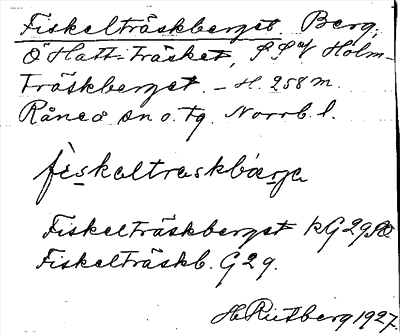 Fiskelträskberget. Berg,
Ö Hatt-träsket, SSV Holm-
träskberget. - H. 258 m.
Råneå sn o. tg. Norrb. l.
fiskeltraskbärje
Fiskelträskberget kG 29
Fiskelträskb. G 29.
H. Rutberg 1927.